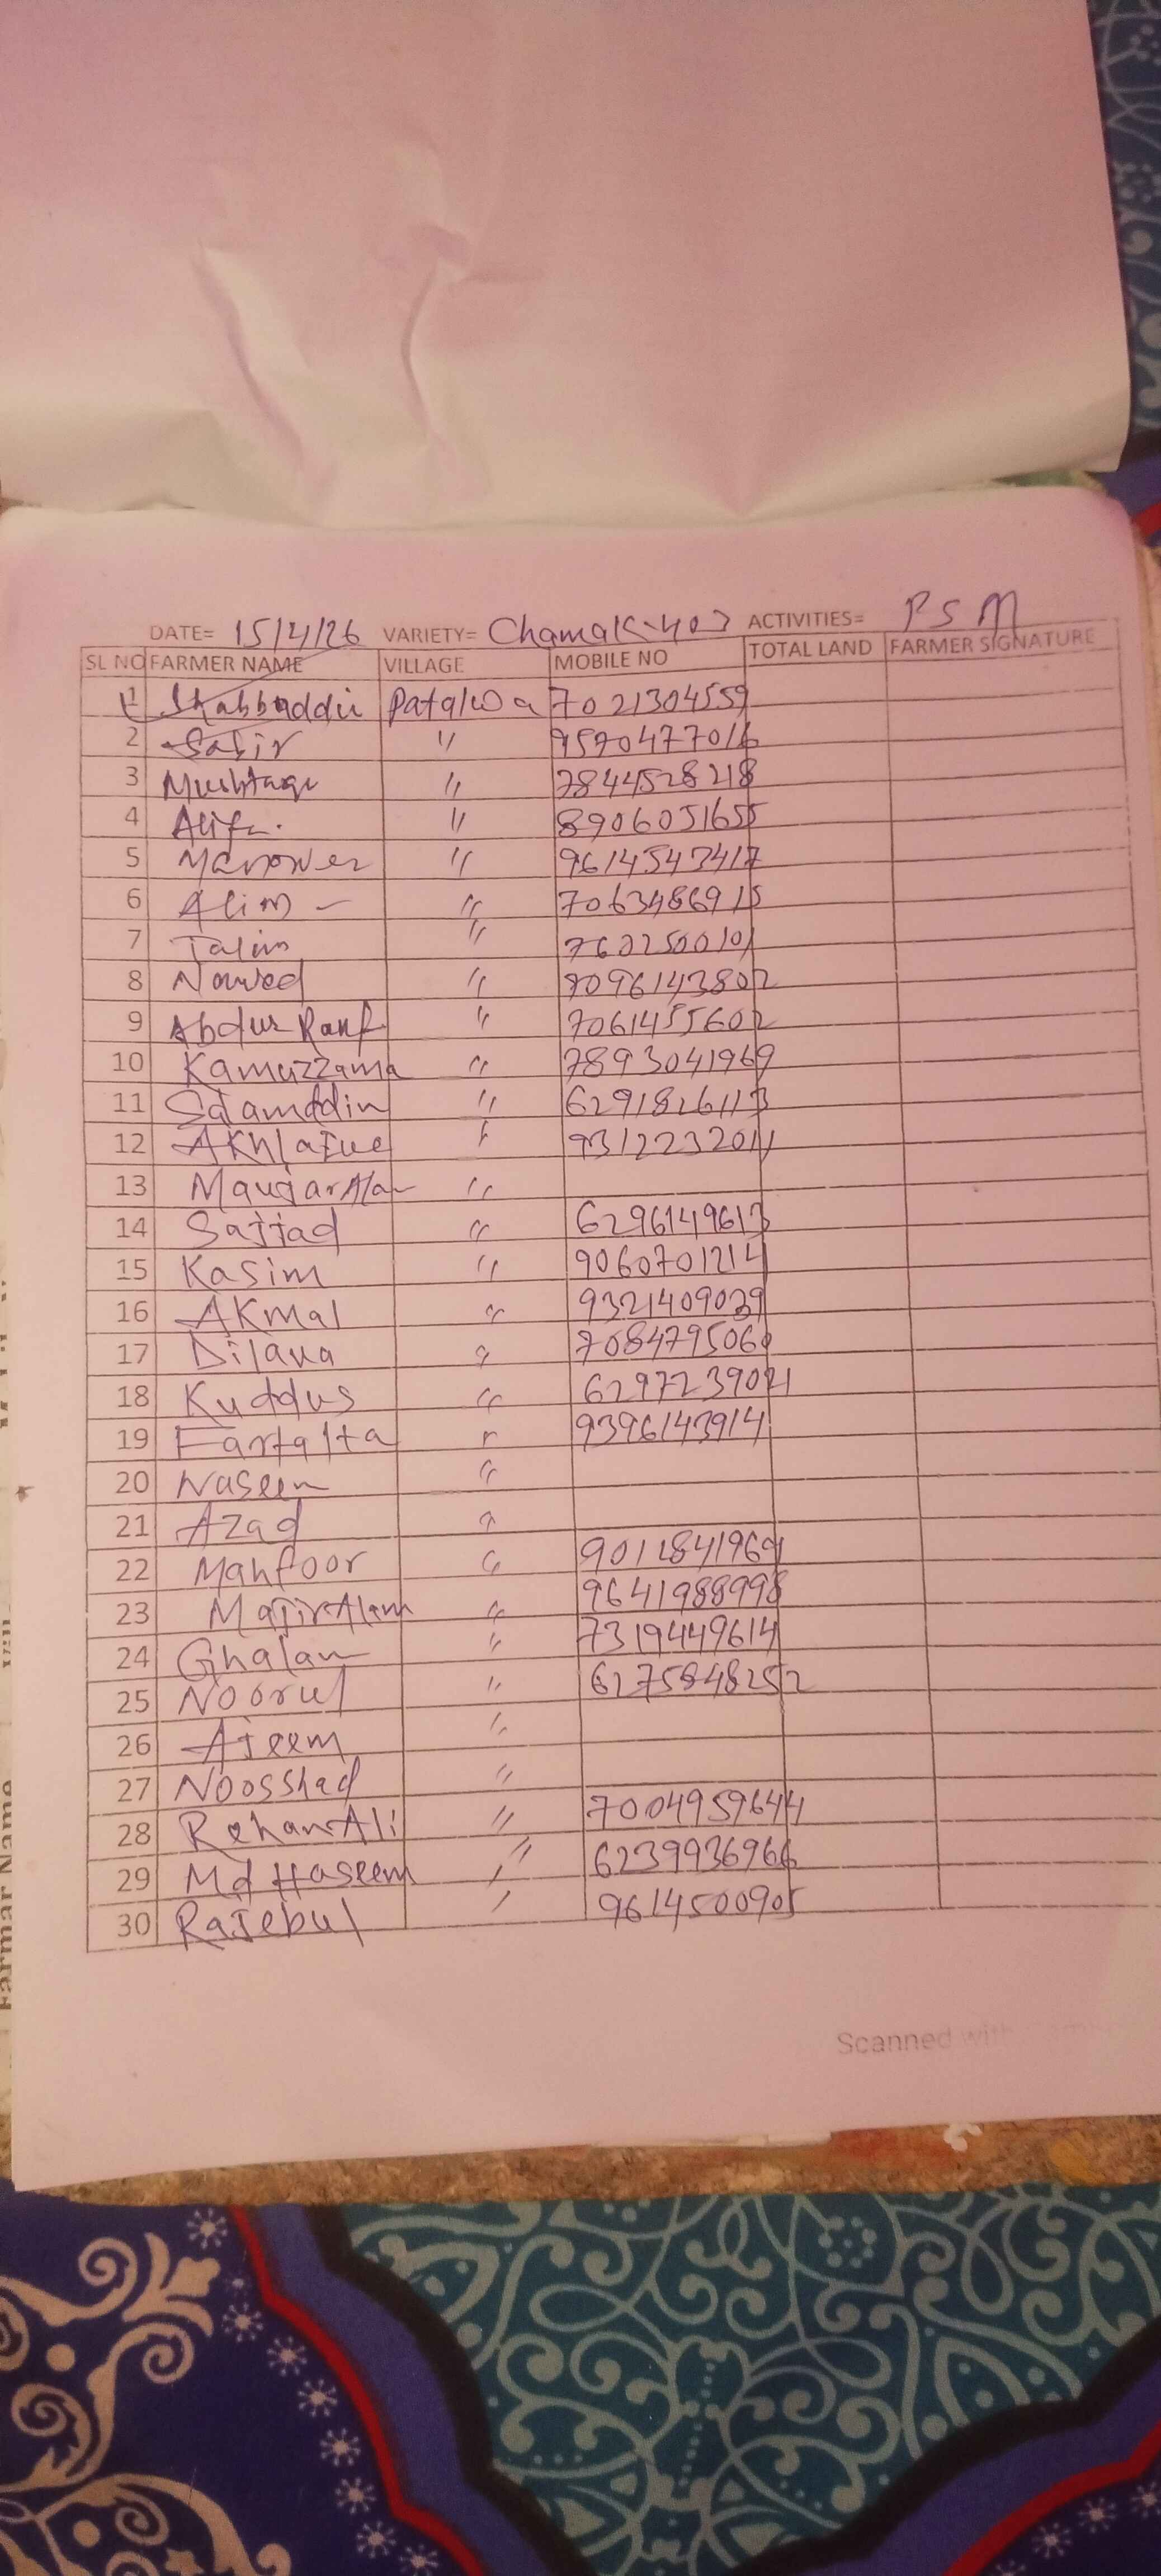 DATE= 15/4/26 VARIETY= Chamak-403 ACTIVITIES= PSM
SL NO FARMER NAME VILLAGE MOBILE NO TOTAL LAND FARMER SIGNATURE
1 Shabbaddin Patalwa 7021304559
2 Sabir " 9570477016
3 Mushtaqe " 7844528218
4 " 8906051655
5 Manower " 9614543417
6 Alim - " 7063486915
7 Talim " 7602500101
8 Nowed " 7096143802
9 Abdur Rauf " 7061455602
10 Kamuzzama " 7893041969
11 Salamddin " 6291826113
12 AKhlaque " 9312232011
13 Manjar Alam "
14 Sajjad " 6296149613
15 Kasim " 9060701214
16 AKmal " 9321409039
17 " 7084795060
18 Kuddus " 6297239021
19 " 9396143914
20 Naseem "
21 Azad "
22 Mahfoor " 9011841969
23 Majir Alam " 9641988998
24 Ghalan " 7319449614
25 Noorul " 6275848252
26 Ajeem "
27 Noosshad "
28 Rehan Ali " 7004959644
29 Md Haseem " 6239936966
30 Rajebul " 9614500905
Scanned with
Farmar Name